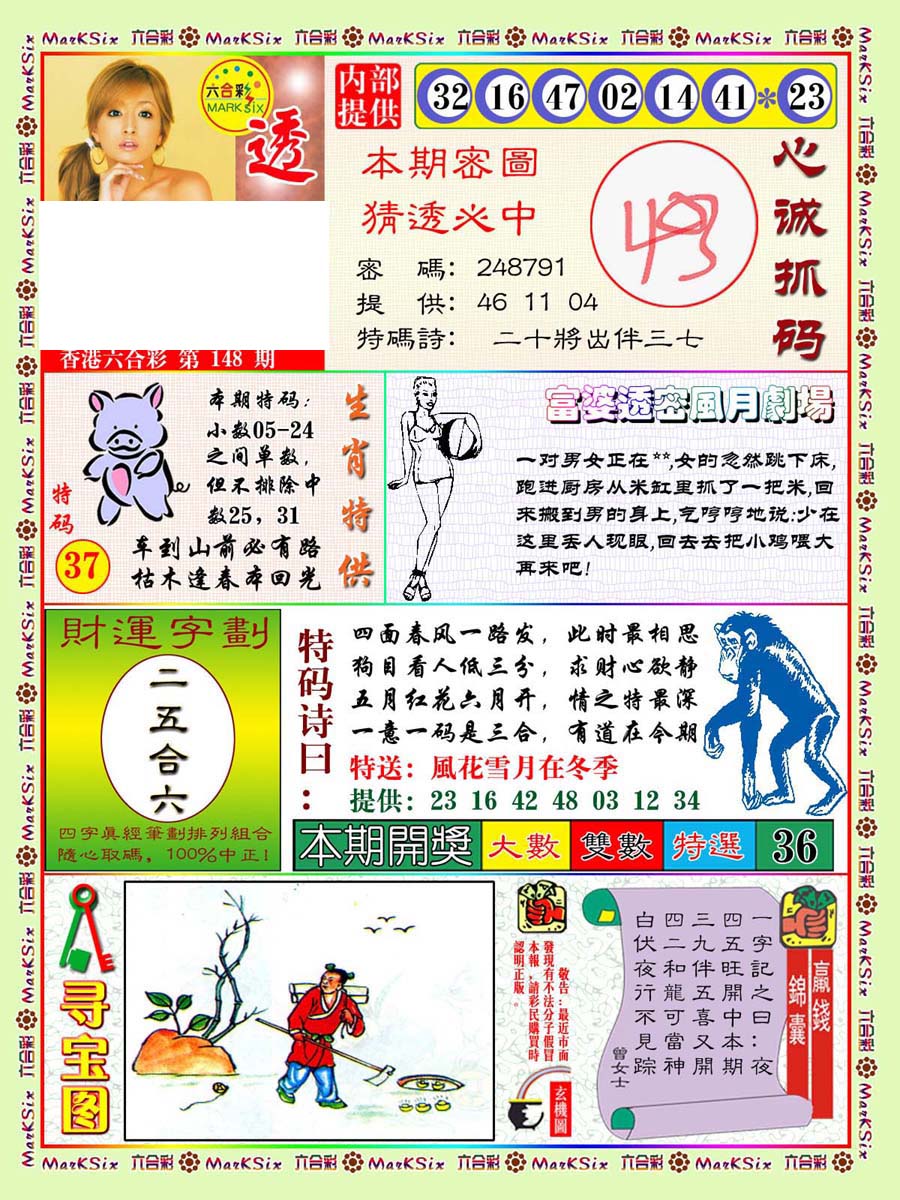 MarKSix 六合彩 MarKSix 六合彩 MarKSix 六合彩 MarKSix 六合彩 MarKSix 六合彩
六合彩
MARK six
透
内部
提供
32 16 47 02 14 41 * 23
本期密圖
猜透必中
密 碼: 248791
提 供: 46 11 04
特碼詩: 二十將出伴三七
心诚抓码
香港六合彩 第 148 期
本期特码:
小数05-24
之间单数,
但不排除中
数25, 31
车到山前必有路
枯木逢春本回光
生肖特供
特码
37
富婆透密風月劇場
一对男女正在**,女的忽然跳下床,
跑进厨房从米缸里抓了一把米,回
来搬到男的身上,气哼哼地说:少在
这里丢人现眼,回去去把小鸡喂大
再来吧!
財運字劃
二五合六
四字眞經筆劃排列組合
隨心取碼, 100%中正!
特码诗曰:
四面春风一路发, 此时最相思
狗目看人低三分, 求财心欲静
五月红花六月开, 情之特最深
一意一码是三合, 有道在今期
特送: 風花雪月在冬季
提供: 23 16 42 48 03 12 34
本期開獎 大數 雙數 特選 36
寻宝图
敬告:最近市面
發現有不法分子假冒
本報,請彩民購買時
認明正版。
玄機圖
贏錢
錦囊
一字記之曰:夜
四五旺開中本期
三九伴五喜又開
四二和龍可當神
白伏夜行不見踪
曾女士
MarKSix 六合彩 MarKSix 六合彩 MarKSix 六合彩 MarKSix 六合彩 MarKSix 六合彩